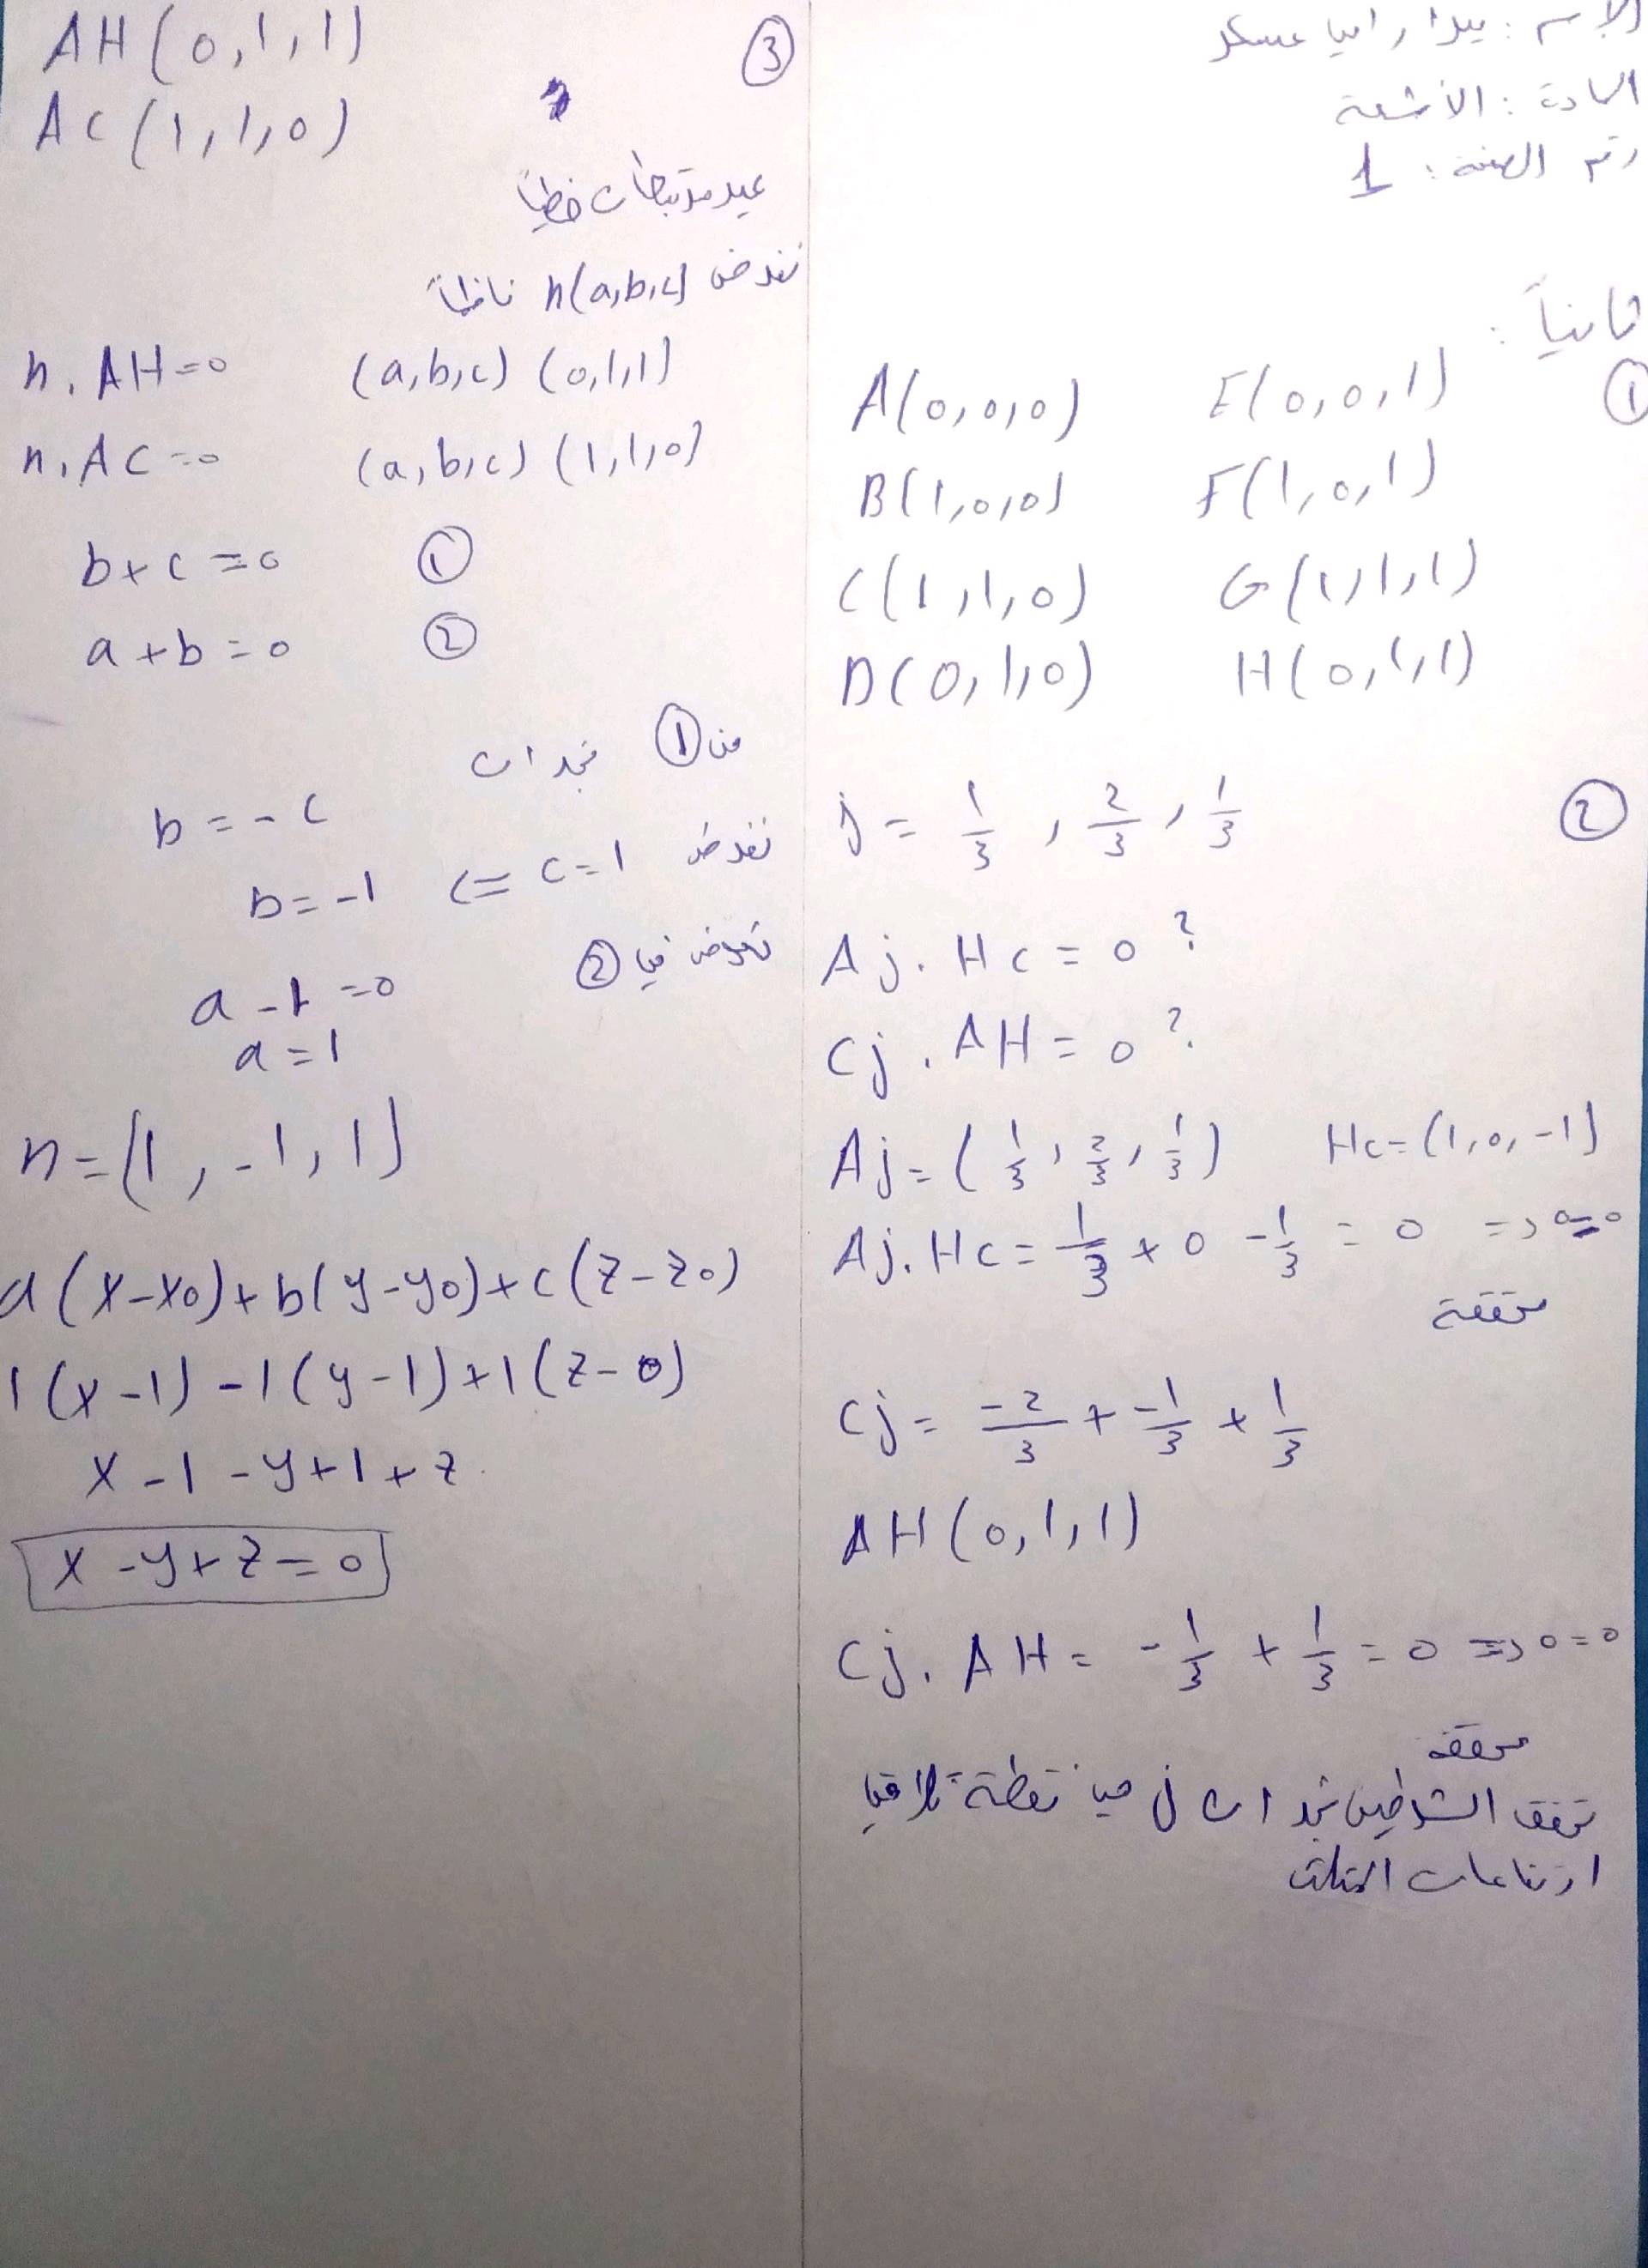 الاسم : يارا رامي عسكر
المادة : الأشعة
رقم الصفحة : 1
ثانياً :
①
A(0,0,0) E(0,0,1)
B(1,0,0) F(1,0,1)
C(1,1,0) G(1,1,1)
D(0,1,0) H(0,1,1)
②
j = 1/3 , 2/3 , 1/3
Aj . Hc = 0 ?
Cj . AH = 0 ?
Aj = (1/3 , 2/3 , 1/3) Hc = (1,0,-1)
Aj . Hc = 1/3 + 0 - 1/3 = 0 => 0=0
محققة
Cj = -2/3 + -1/3 + 1/3
AH (0,1,1)
Cj . AH = -1/3 + 1/3 = 0 => 0=0
محققة
تحقق الشرطين نجد ان j هي نقطة تلاقي
ارتفاعات المثلث
③
AH (0,1,1)
AC (1,1,0)
غير مرتبطات خطياً
نفرض n(a,b,c) ناظماً
n . AH = 0 (a,b,c) (0,1,1)
n . AC = 0 (a,b,c) (1,1,0)
b + c = 0 ①
a + b = 0 ②
من ① نجد ان
b = - c
نفرض c = 1 <= b = -1
نعوض في ②
a - 1 = 0
a = 1
n = (1, -1, 1)
a(x-x0) + b(y-y0) + c(z-z0)
1(x-1) -1(y-1) +1(z-0)
x - 1 - y + 1 + z
x - y + z = 0